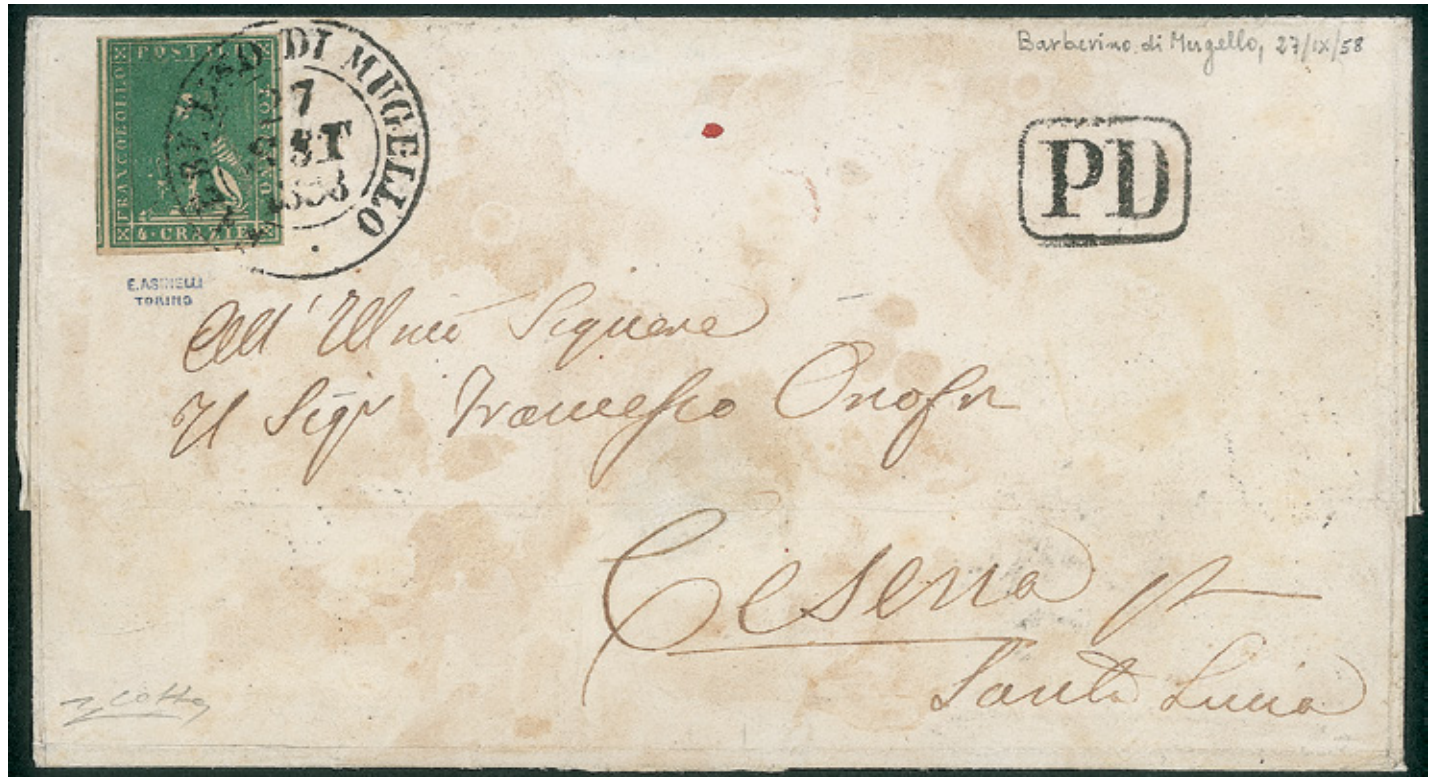 Barberino di Mugello, 27/IX/58
FRANCOBOLLO
POSTALE
TOSCANO
6·CRAZIE
DI MUGELLO
27
SET
1858
PD
E. ASINELLI
TORINO
All' Illmo Signore
Il Sigr Francesco
Cesena
Santa Lucia